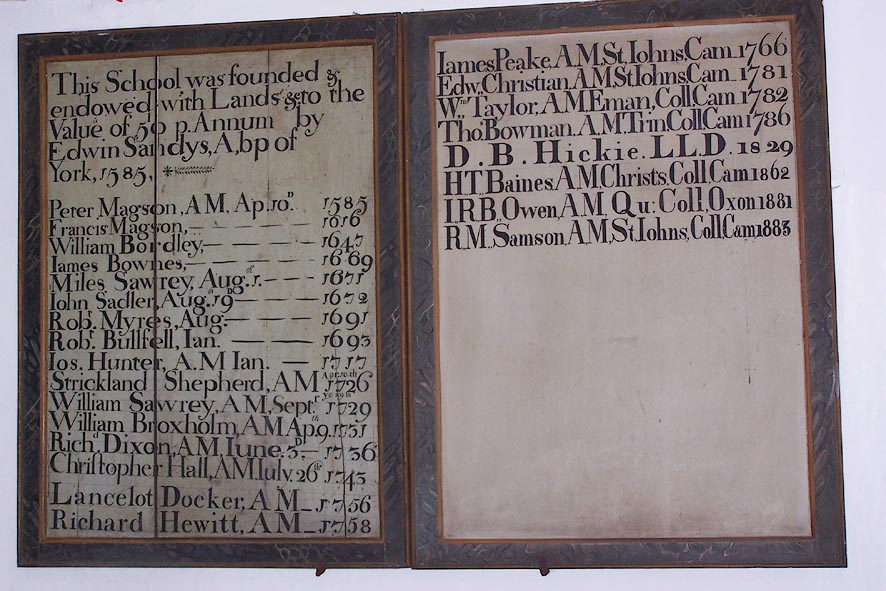 This School was founded &
endowed with Lands &c to the
Value of 50 p. Annum by
Edwin Sandys, A,bp of
York, 1585,
Peter Magson, A M, Ap. 10.D 1585
Francis Magson, 1616
William Bordley, 1647
Iames Bownes, 1669
Miles Sawrey, Aug.st 1. 1671
Iohn Sadler, Aug.st 19 1672
Rob.r Myres, Aug. 1691
Rob.r Bullfell, Ian. 1693
Ios. Hunter, A.M Ian. 1717
Strickland Shepherd, A M 1726
William Sawrey, A M, Sept.r 1729
William Broxholm, A M Ap.9th. 1731
Rich.d Dixon, A M, Iune. 3.D 1736
Christopher Hall, A M Iuly. 26th 1743
Lancelot Docker, A M 1756
Richard Hewitt, A M 1758
Iames Peake, A.M, St. Iohns, Cam. 1766
Edw, Christian, A M, St Iohns, Cam 1781
W.m Taylor, A.M Eman, Coll, Cam 1782
Tho.s Bowman, A.M. Trin, Coll, Cam 1786
D. B. Hickie. LL.D. 1829
H T. Baines A M, Christs, Coll, Cam 1862
I.R.B, Owen, A M Qu: Coll, Oxon 1881
R. M, Samson, A M, St, Iohns, Coll, Cam, 1883